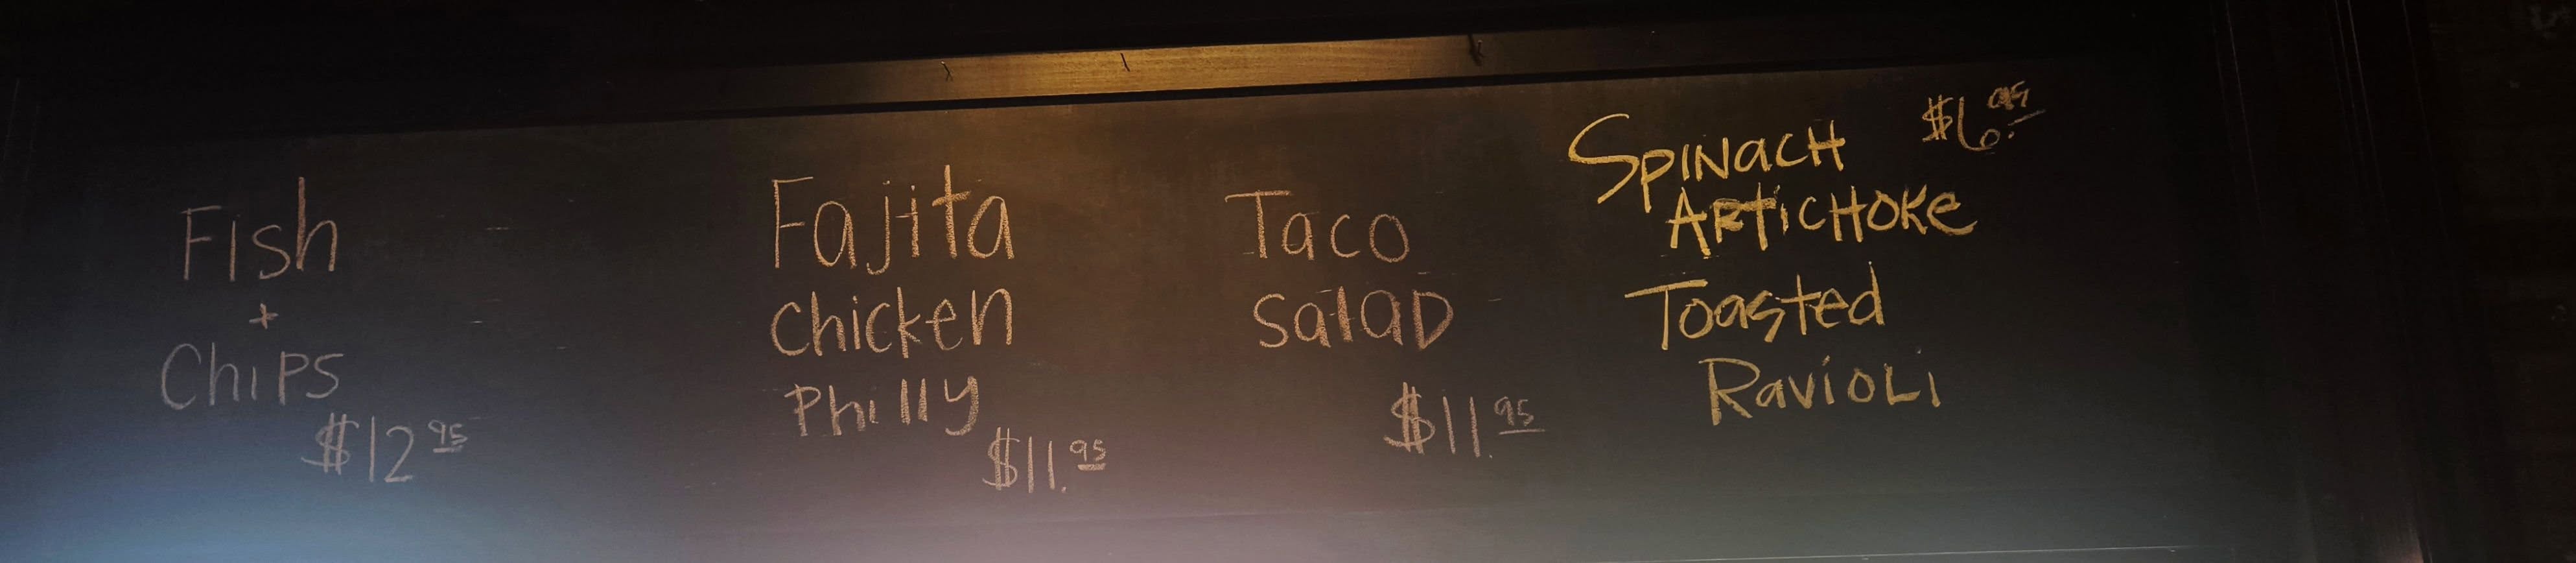 Fish
+
Chips
$12 95
Fajita
Chicken
Philly
$11.95
Taco
Salad
$11.95
Spinach $6.95
Artichoke
Toasted
Ravioli